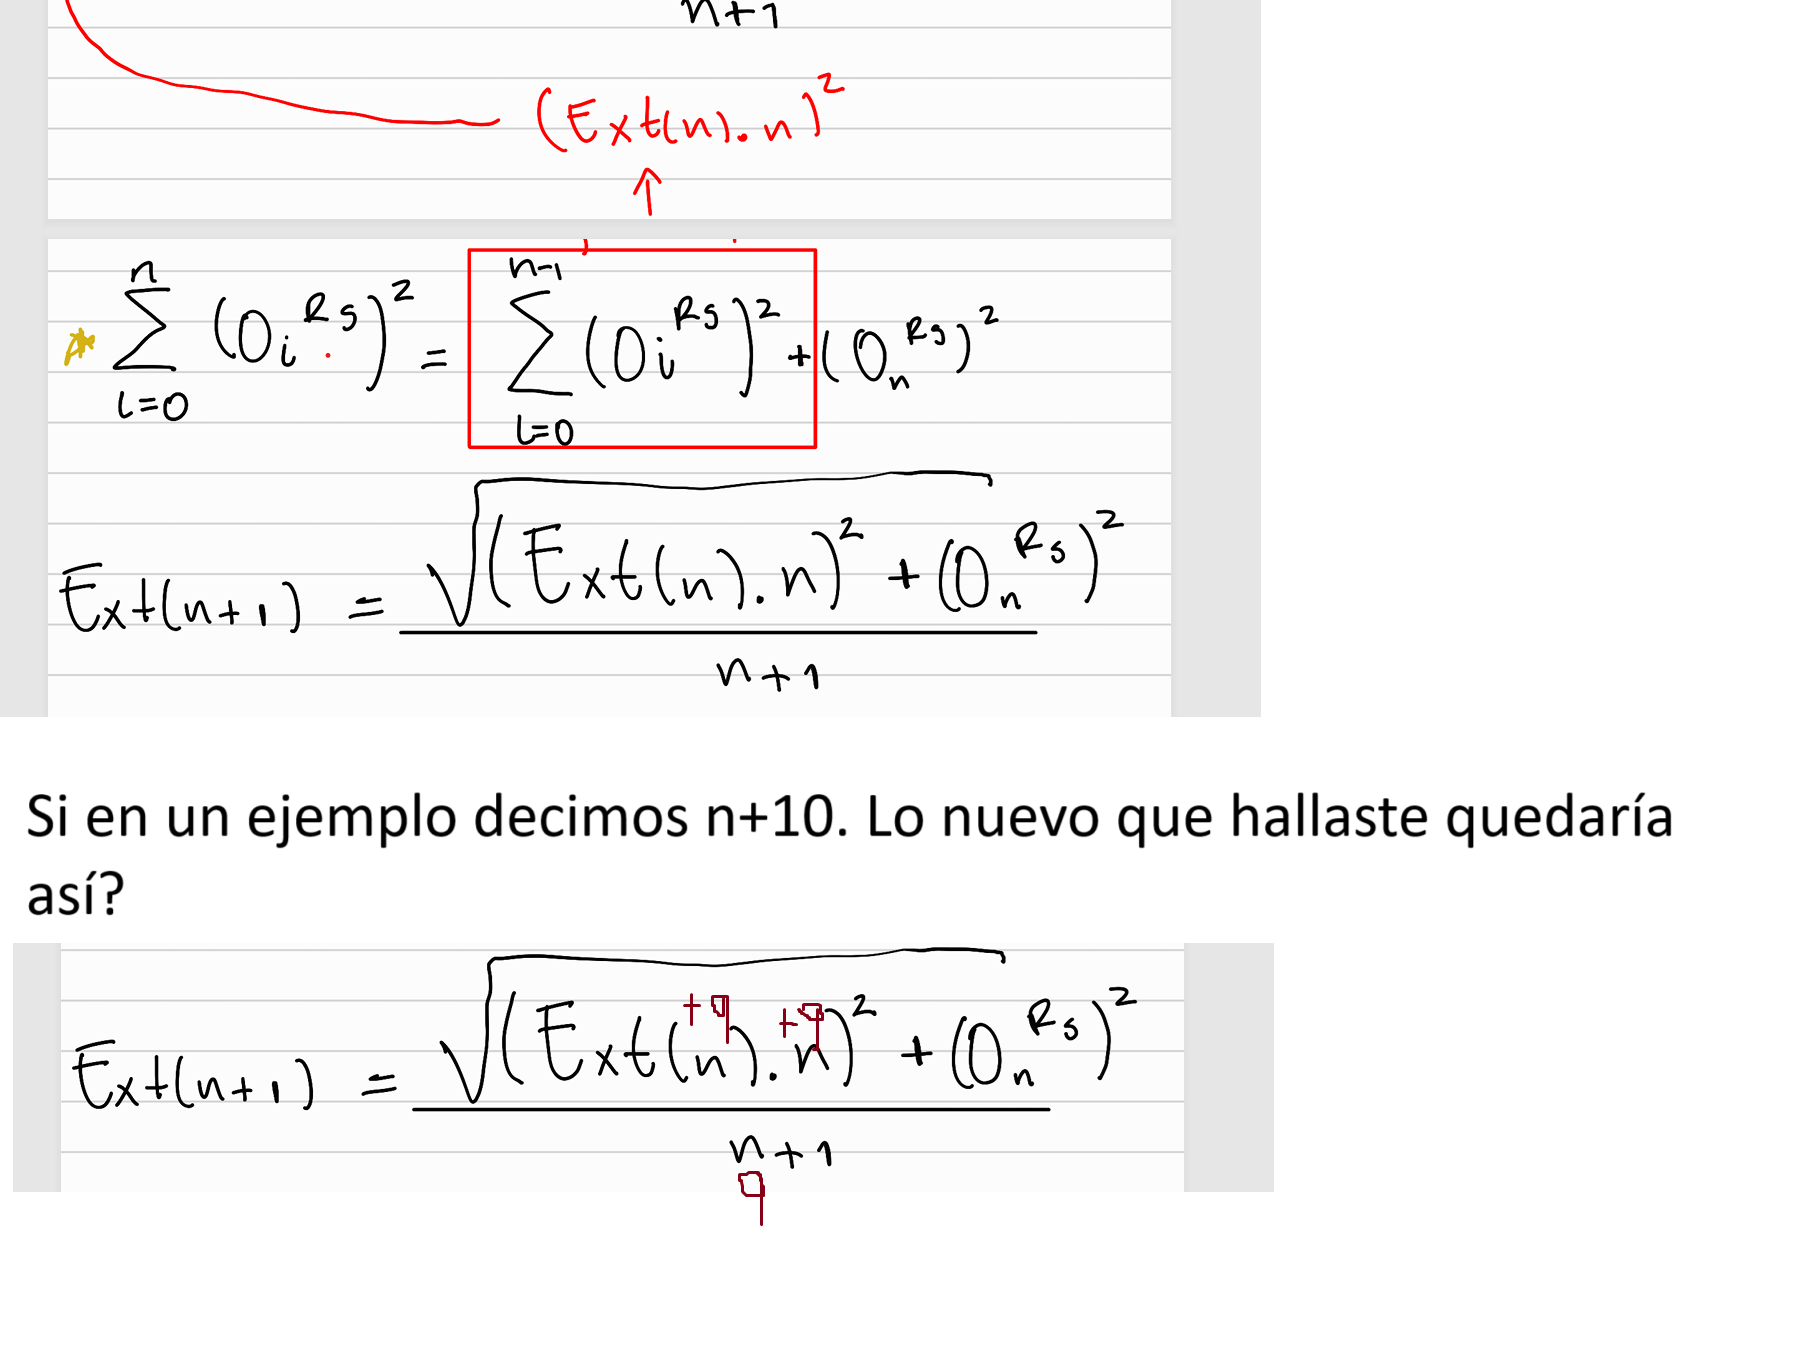 n+1
(Ext(n).n)²
↑
* n∑i=0 (Oi^Rs)² = n-1∑i=0 (Oi^Rs)² + (On^Rs)²
Ext(n+1) = √((Ext(n).n)² + (On^Rs)²) / n+1
Si en un ejemplo decimos n+10. Lo nuevo que hallaste quedaría
así?
Ext(n+1) = √((Ext(n+9).n+9)² + (On^Rs)²) / n+1
9